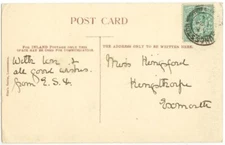 POST CARD
FOR INLAND POSTAGE ONLY THIS
SPACE MAY BE USED FOR COMMUNICATION.
THE ADDRESS ONLY TO BE WRITTEN HERE.
With love &
all good wishes.
from E.S.
Miss Kingford
Exmouth